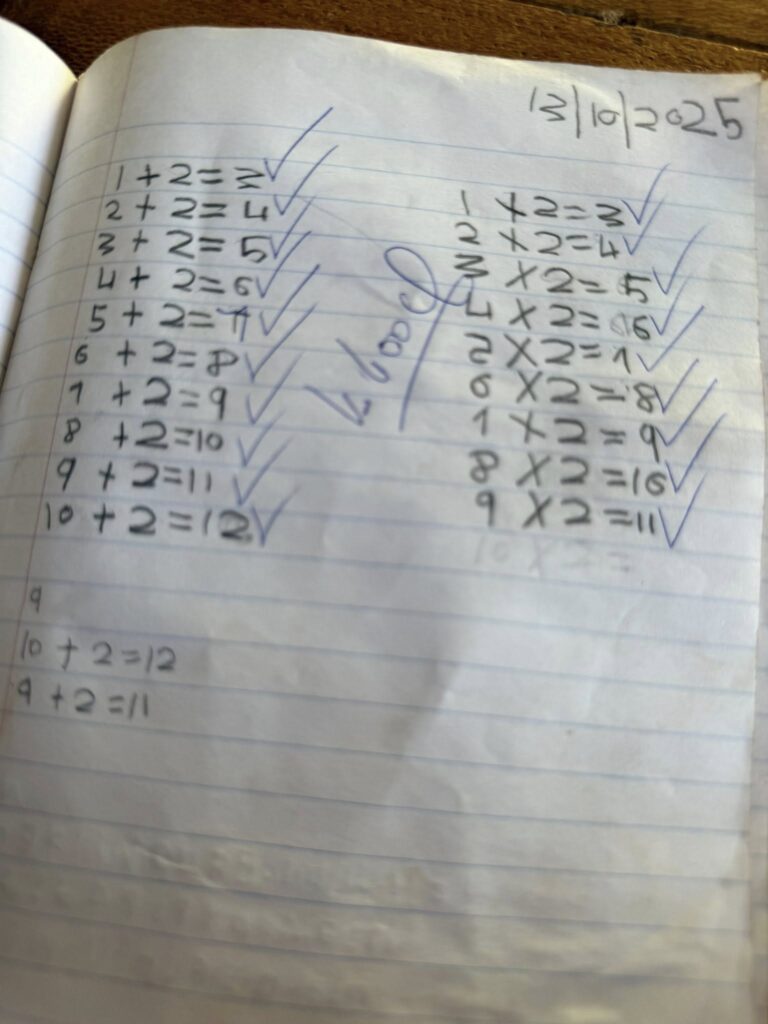 13|10|2025
1 + 2 = 3
2 + 2 = 4
3 + 2 = 5
4 + 2 = 6
5 + 2 = 7
6 + 2 = 8
7 + 2 = 9
8 + 2 = 10
9 + 2 = 11
10 + 2 = 12
9
10 + 2 = 12
9 + 2 = 11
Good
1 + 2 = 3
2 + 2 = 4
3 × 2 = 5
4 × 2 = 6
2 × 2 = 7
6 × 2 = 8
7 × 2 = 9
8 × 2 = 16
9 × 2 = 11
10 × 2 =